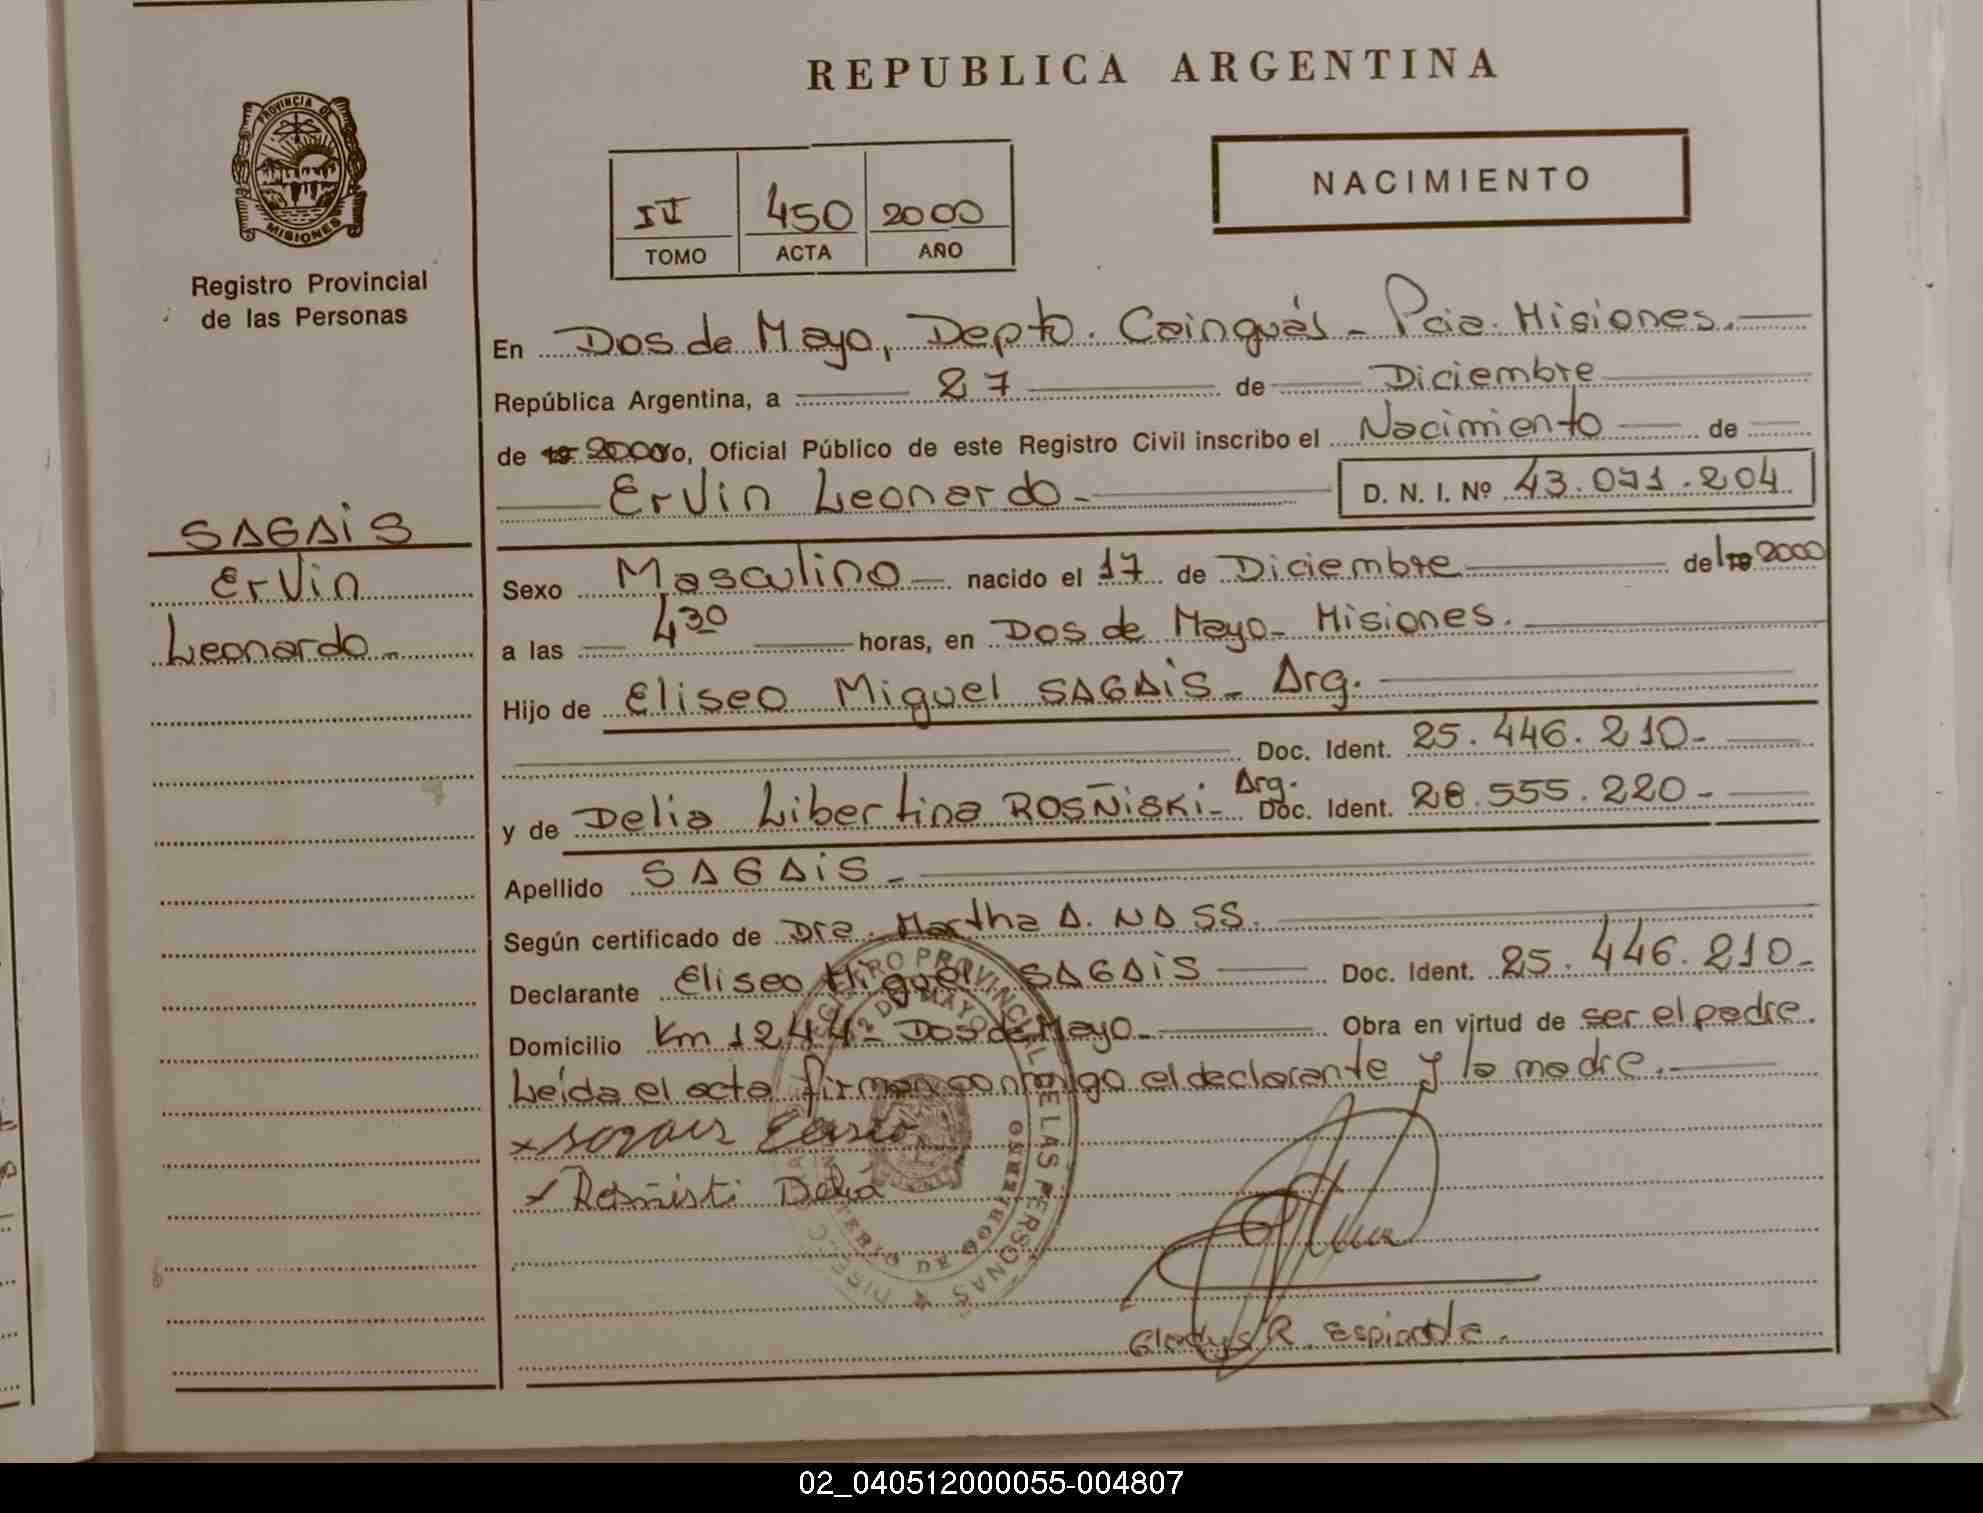 REPUBLICA ARGENTINA
PROVINCIA DE
MISIONES
Registro Provincial
de las Personas
450 2000
TOMO ACTA AÑO
NACIMIENTO
En Dos de Mayo, Depto. Cainguás - Pcia. Misiones.
República Argentina, a 27 de Diciembre
de 19 2000 yo, Oficial Público de este Registro Civil inscribo el Nacimiento de
Ervin Leonardo - D. N. I. Nº 43.071.204
SAGAIS
Ervin
Leonardo -
Sexo Masculino nacido el 17 de Diciembre de 19 2000
a las 4 30 horas, en Dos de Mayo - Misiones.
Hijo de Eliseo Miguel SAGAIS - Arg.
Doc. Ident. 25.446.210-
y de Delia Libertina ROSÑISKI - Arg. Doc. Ident. 28.555.220-
Apellido SAGAIS -
Según certificado de Dra. Martha A. NASS.
Declarante Eliseo Miguel SAGAIS Doc. Ident. 25.446.210-
Domicilio Km 1244 - Dos de Mayo - Obra en virtud de ser el padre.
Leída el acta firman conmigo el declarante y la madre.
REGISTRO PROVINCIAL DE LAS PERSONAS
2 DE MAYO
MINISTERIO DE GOBIERNO
Delia
Gladys R.
02_040512000055-004807